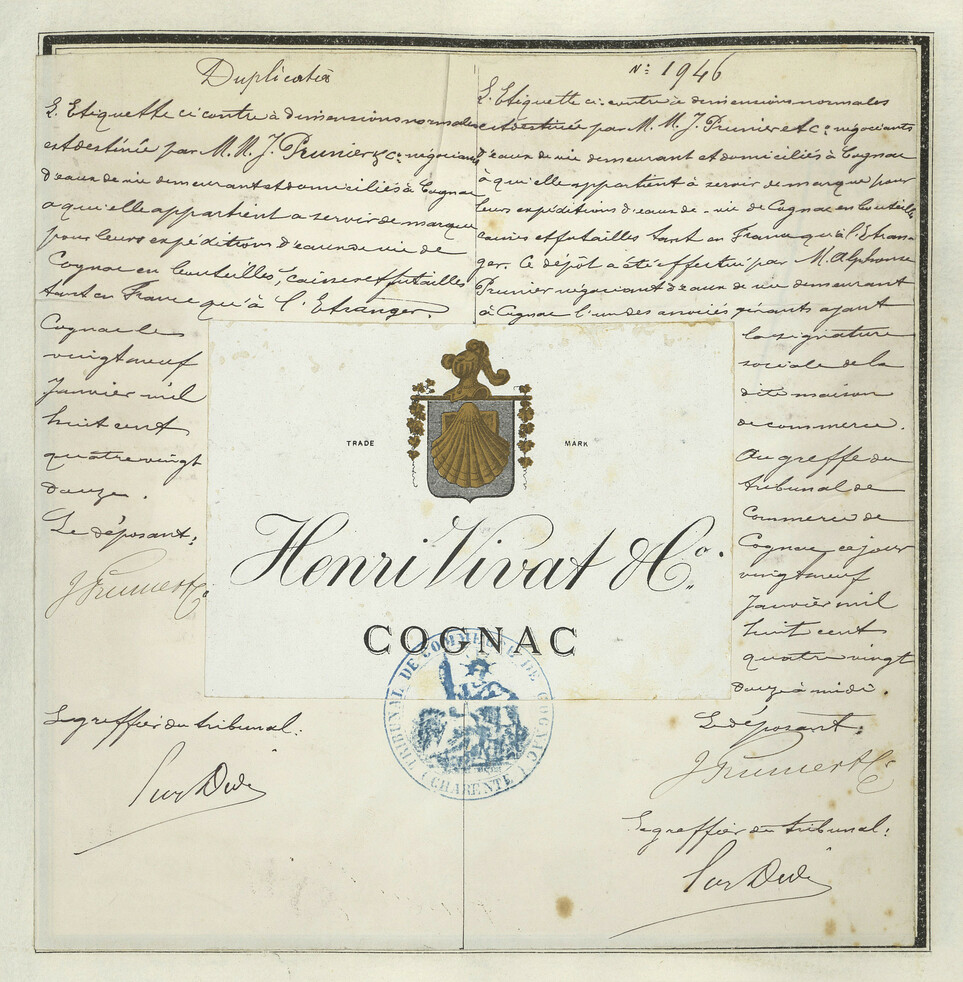 Duplicata
L'Etiquette ci contre à dimensions normales
est destinée par M.M. J. Prunier & Cº négociants
d'eaux de vie demeurant et domiciliés à Cognac
a qu'elle appartient a servir de marque
pour leurs expéditions d'eaux de vie de
Cognac en bouteilles, caisses et futailles
tant en France qu'à l'Etranger.
Cognac le
vingt neuf
Janvier mil
huit cent
quatre vingt
douze.
Le déposant:
J. Prunier & Cº
Le greffier du tribunal:
Nº 1946
L'Etiquette ci-contre à dimensions normales
est destinée par M.M. J. Prunier et Cº négociants
d'eaux de vie demeurant et domiciliés à Cognac
à qu'elle appartient à servir de marque pour
leurs expéditions d'eaux de-vie de Cognac en bouteilles
caisses et futailles tant en France qu'à l'Etran-
ger. Ce dépôt a été effectué par M. Alphonse
Prunier négociant d'eaux de vie demeurant
à Cognac l'un des associés gérants ayant
la signature
sociale de la
dite maison
de commerce.
Au greffe du
tribunal de
Commerce de
Cognac, ce jour
vingt neuf
Janvier mil
huit cent
quatre vingt
douze à midi.
Le déposant:
J. Prunier & Cº
Le greffier du tribunal:
TRADE MARK
Henri Vivat & Cº.
COGNAC
TRIBUNAL DE COMMERCE DE COGNAC
(CHARENTE)